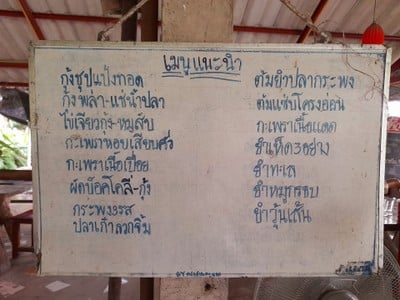 เมนูแนะนำ
กุ้งชุปแป้งทอด
กุ้งพล่า-แช่น้ำปลา
ไข่เจียวกุ้ง-หมูสับ
กะเพราหอยเสียบคั่ว
กะเพราเนื้อเปื่อย
ผัดบ็อคโคลี่-กุ้ง
กระพง3รส
ปลาเก๋าลวกจิ้ม
ต้มยำปลากระพง
ต้มแซ่บโครงอ่อน
กะเพราเนื้อแดด
ยำเห็ด3อย่าง
ยำทะเล
ยำหมูกรอบ
ยำวุ้นเส้น